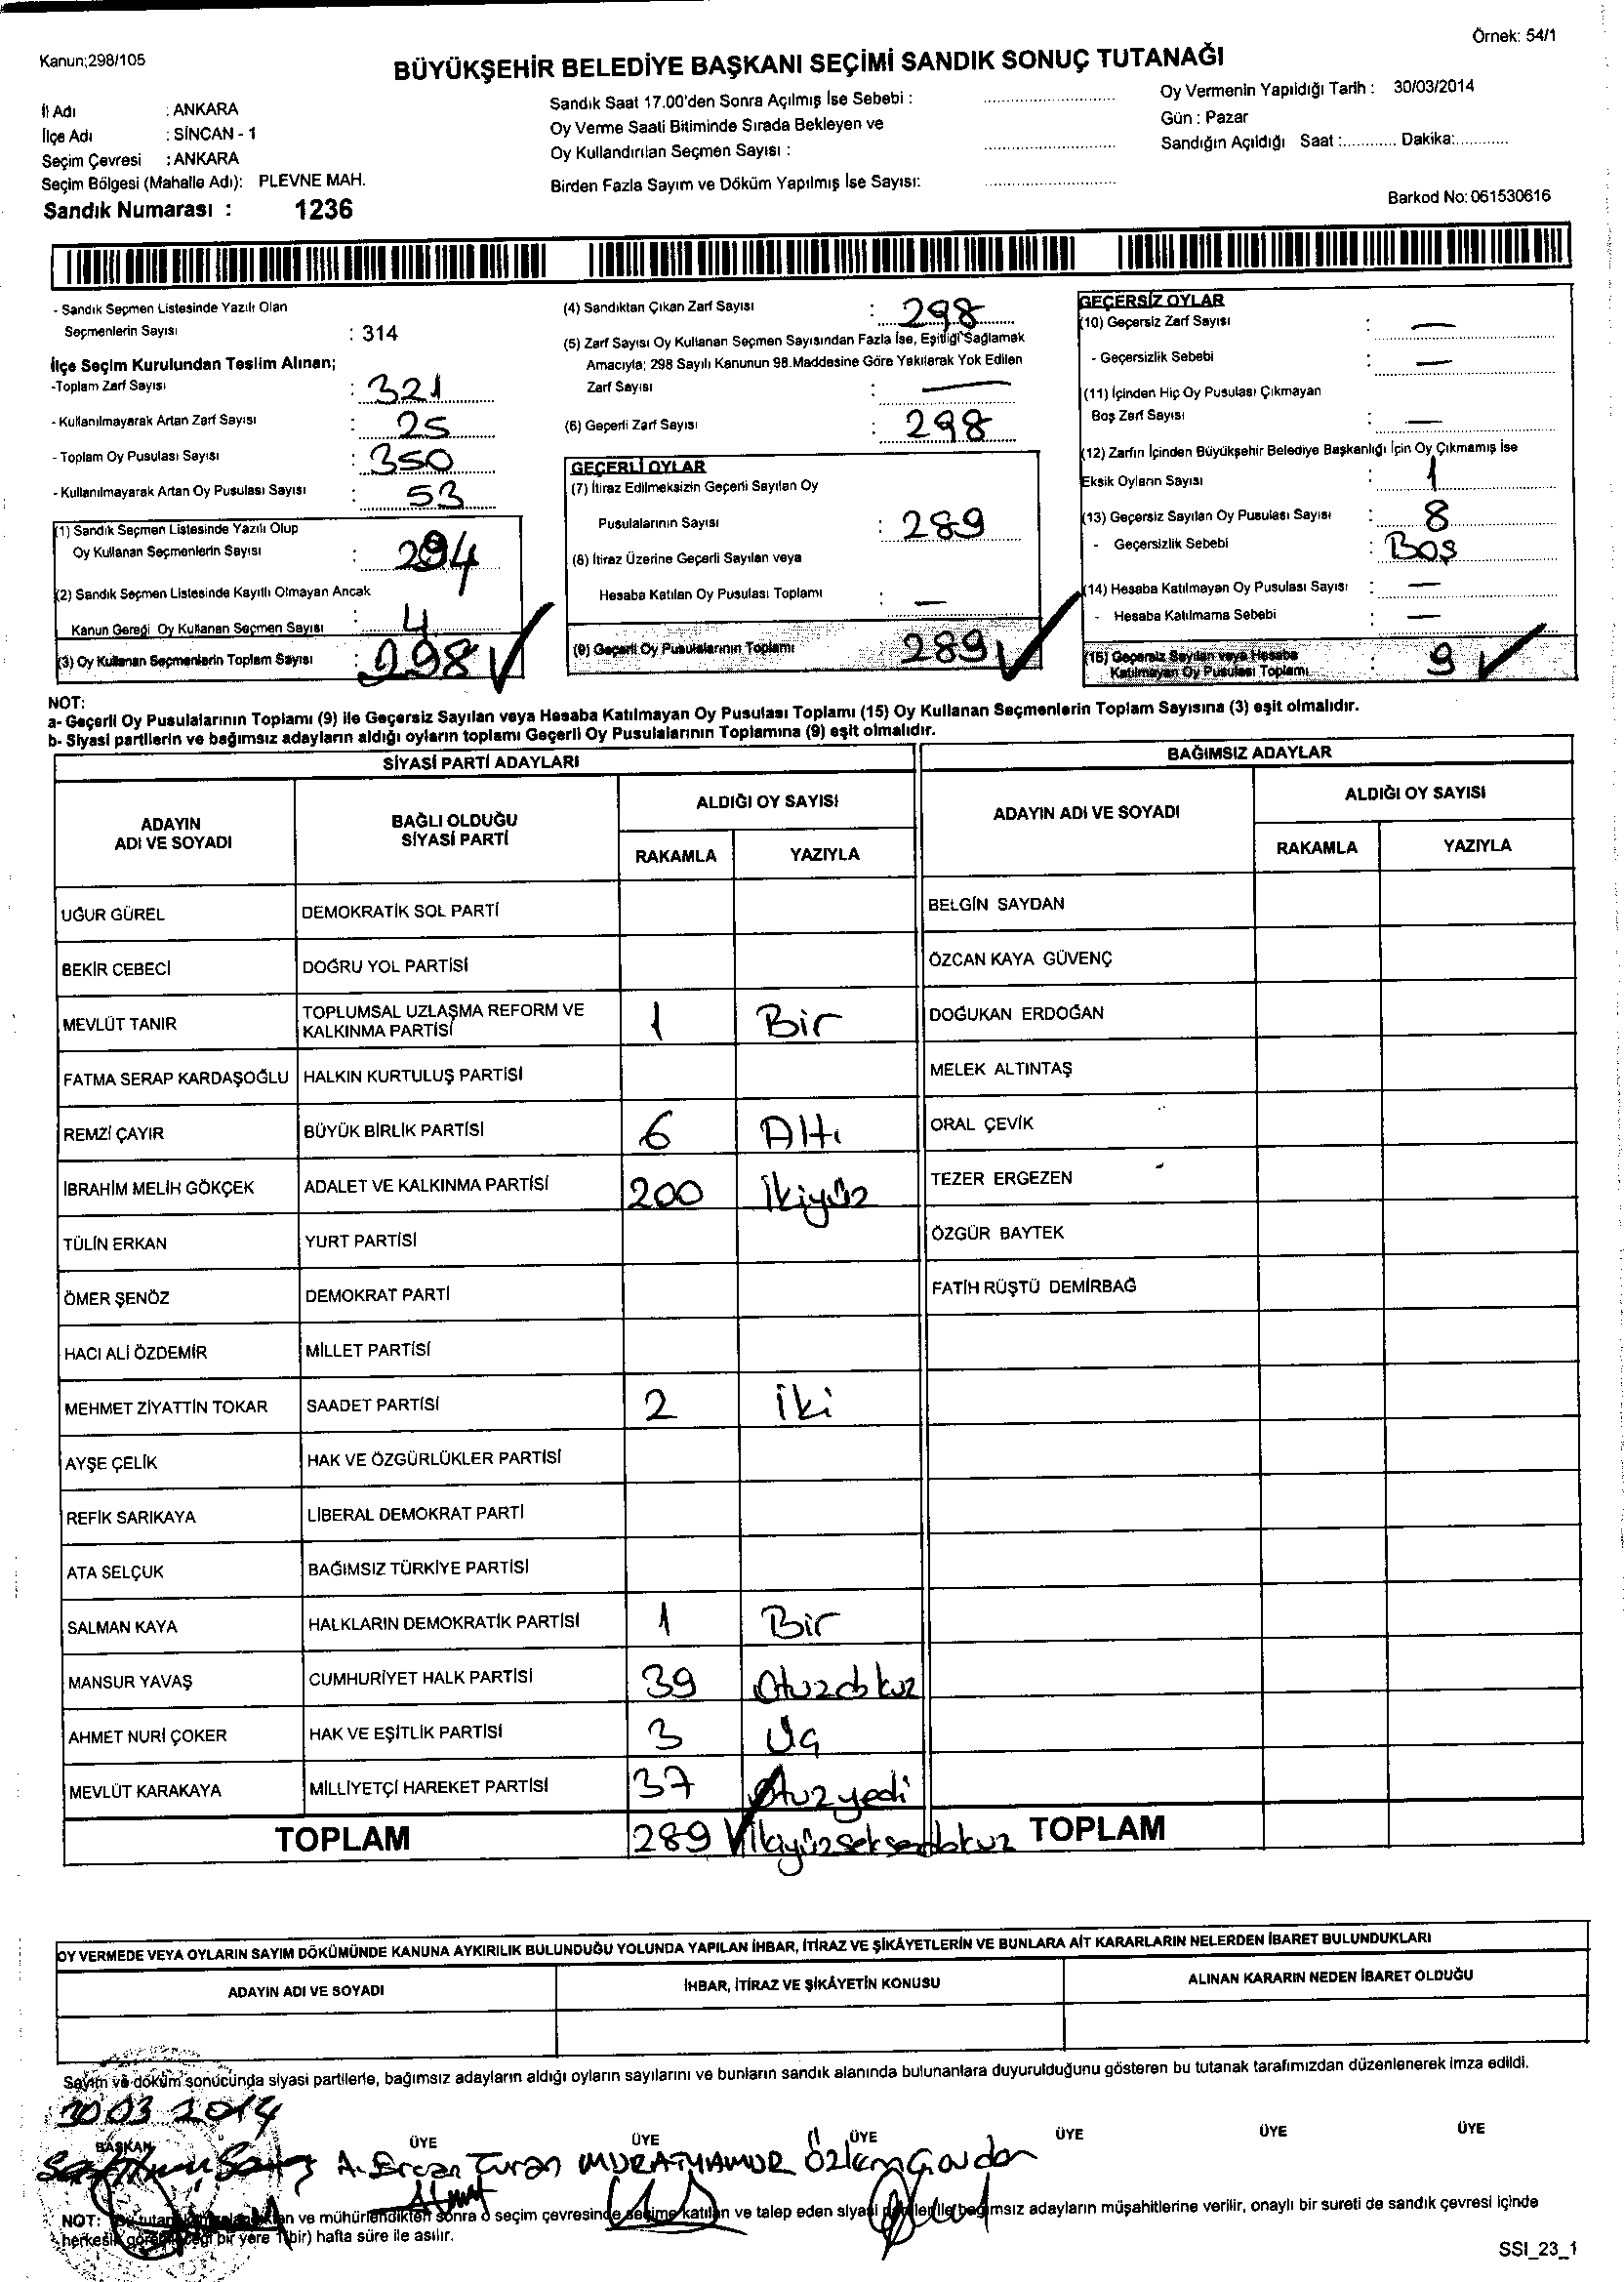 Örnek: 54/1
Kanun;298/105
BÜYÜKŞEHİR BELEDİYE BAŞKANI SEÇİMİ SANDIK SONUÇ TUTANAĞI
İl Adı : ANKARA
İlçe Adı : SİNCAN - 1
Seçim Çevresi : ANKARA
Seçim Bölgesi (Mahalle Adı): PLEVNE MAH.
Sandık Numarası : 1236
Sandık Saat 17.00'den Sonra Açılmış İse Sebebi :
Oy Verme Saati Bitiminde Sırada Bekleyen ve
Oy Kullandırılan Seçmen Sayısı :
Birden Fazla Sayım ve Döküm Yapılmış İse Sayısı:
Oy Vermenin Yapıldığı Tarih : 30/03/2014
Gün : Pazar
Sandığın Açıldığı Saat :............ Dakika:............
Barkod No: 061530616
- Sandık Seçmen Listesinde Yazılı Olan
Seçmenlerin Sayısı : 314
İlçe Seçim Kurulundan Teslim Alınan;
-Toplam Zarf Sayısı : 321
- Kullanılmayarak Artan Zarf Sayısı : 25
- Toplam Oy Pusulası Sayısı : 350
- Kullanılmayarak Artan Oy Pusulası Sayısı : 53
(1) Sandık Seçmen Listesinde Yazılı Olup
Oy Kullanan Seçmenlerin Sayısı : 294
(2) Sandık Seçmen Listesinde Kayıtlı Olmayan Ancak
Kanun Gereği Oy Kullanan Seçmen Sayısı : 4
(3) Oy Kullanan Seçmenlerin Toplam Sayısı : 298
(4) Sandıktan Çıkan Zarf Sayısı : 298
(5) Zarf Sayısı Oy Kullanan Seçmen Sayısından Fazla İse, Eşitliği Sağlamak
Amacıyla; 298 Sayılı Kanunun 98.Maddesine Göre Yakılarak Yok Edilen
Zarf Sayısı : —
(6) Geçerli Zarf Sayısı : 298
GEÇERLİ OYLAR
(7) İtiraz Edilmeksizin Geçerli Sayılan Oy
Pusulalarının Sayısı : 289
(8) İtiraz Üzerine Geçerli Sayılan veya
Hesaba Katılan Oy Pusulası Toplamı : —
(9) Geçerli Oy Pusulalarının Toplamı 289
GEÇERSİZ OYLAR
(10) Geçersiz Zarf Sayısı : —
- Geçersizlik Sebebi : —
(11) İçinden Hiç Oy Pusulası Çıkmayan
Boş Zarf Sayısı : —
(12) Zarfın İçinden Büyükşehir Belediye Başkanlığı İçin Oy Çıkmamış İse
Eksik Oyların Sayısı : 1
(13) Geçersiz Sayılan Oy Pusulası Sayısı : 8
- Geçersizlik Sebebi : Boş
(14) Hesaba Katılmayan Oy Pusulası Sayısı : —
- Hesaba Katılmama Sebebi : —
(15) Geçersiz Sayılan veya Hesaba
Katılmayan Oy Pusulası Toplamı : 9
NOT:
a- Geçerli Oy Pusulalarının Toplamı (9) ile Geçersiz Sayılan veya Hesaba Katılmayan Oy Pusulası Toplamı (15) Oy Kullanan Seçmenlerin Toplam Sayısına (3) eşit olmalıdır.
b- Siyasi partilerin ve bağımsız adayların aldığı oyların toplamı Geçerli Oy Pusulalarının Toplamına (9) eşit olmalıdır.
SİYASİ PARTİ ADAYLARI
ADAYIN ADI VE SOYADI
BAĞLI OLDUĞU SİYASİ PARTİ
ALDIĞI OY SAYISI
RAKAMLA YAZIYLA
UĞUR GÜREL DEMOKRATİK SOL PARTİ
BEKİR CEBECİ DOĞRU YOL PARTİSİ
MEVLÜT TANIR TOPLUMSAL UZLAŞMA REFORM VE KALKINMA PARTİSİ 1 Bir
FATMA SERAP KARDAŞOĞLU HALKIN KURTULUŞ PARTİSİ
REMZİ ÇAYIR BÜYÜK BİRLİK PARTİSİ 6 Altı
İBRAHİM MELİH GÖKÇEK ADALET VE KALKINMA PARTİSİ 200 İkiyüz
TÜLİN ERKAN YURT PARTİSİ
ÖMER ŞENÖZ DEMOKRAT PARTİ
HACI ALİ ÖZDEMİR MİLLET PARTİSİ
MEHMET ZİYATTİN TOKAR SAADET PARTİSİ 2 İki
AYŞE ÇELİK HAK VE ÖZGÜRLÜKLER PARTİSİ
REFİK SARIKAYA LİBERAL DEMOKRAT PARTİ
ATA SELÇUK BAĞIMSIZ TÜRKİYE PARTİSİ
SALMAN KAYA HALKLARIN DEMOKRATİK PARTİSİ 1 Bir
MANSUR YAVAŞ CUMHURİYET HALK PARTİSİ 39 Otuzdokuz
AHMET NURİ ÇOKER HAK VE EŞİTLİK PARTİSİ 3 Üç
MEVLÜT KARAKAYA MİLLİYETÇİ HAREKET PARTİSİ 37 Otuzyedi
TOPLAM 289 ikiyüzseksendokuz
BAĞIMSIZ ADAYLAR
ADAYIN ADI VE SOYADI
ALDIĞI OY SAYISI
RAKAMLA YAZIYLA
BELGİN SAYDAN
ÖZCAN KAYA GÜVENÇ
DOĞUKAN ERDOĞAN
MELEK ALTINTAŞ
ORAL ÇEVİK
TEZER ERGEZEN
ÖZGÜR BAYTEK
FATİH RÜŞTÜ DEMİRBAĞ
TOPLAM
OY VERMEDE VEYA OYLARIN SAYIM DÖKÜMÜNDE KANUNA AYKIRILIK BULUNDUĞU YOLUNDA YAPILAN İHBAR, İTİRAZ VE ŞİKÂYETLERİN VE BUNLARA AİT KARARLARIN NELERDEN İBARET BULUNDUKLARI
ADAYIN ADI VE SOYADI İHBAR, İTİRAZ VE ŞİKÂYETİN KONUSU ALINAN KARARIN NEDEN İBARET OLDUĞU
Sayım ve döküm sonucunda siyasi partilerle, bağımsız adayların aldığı oyların sayılarını ve bunların sandık alanında bulunanlara duyurulduğunu gösteren bu tutanak tarafımızdan düzenlenerek imza edildi.
30.03.2014
BAŞKAN ÜYE ÜYE ÜYE ÜYE ÜYE ÜYE
A. Ercan Turan MURAT YAMUR Özlem
NOT: Bu tutanak ve mühürlendikten sonra o seçim çevresinde seçime katılan ve talep eden siyasi partilerle bağımsız adayların müşahitlerine verilir, onaylı bir sureti de sandık çevresi içinde
herkesin görebileceği bir yere 1(bir) hafta süre ile asılır.
SSI_23_1